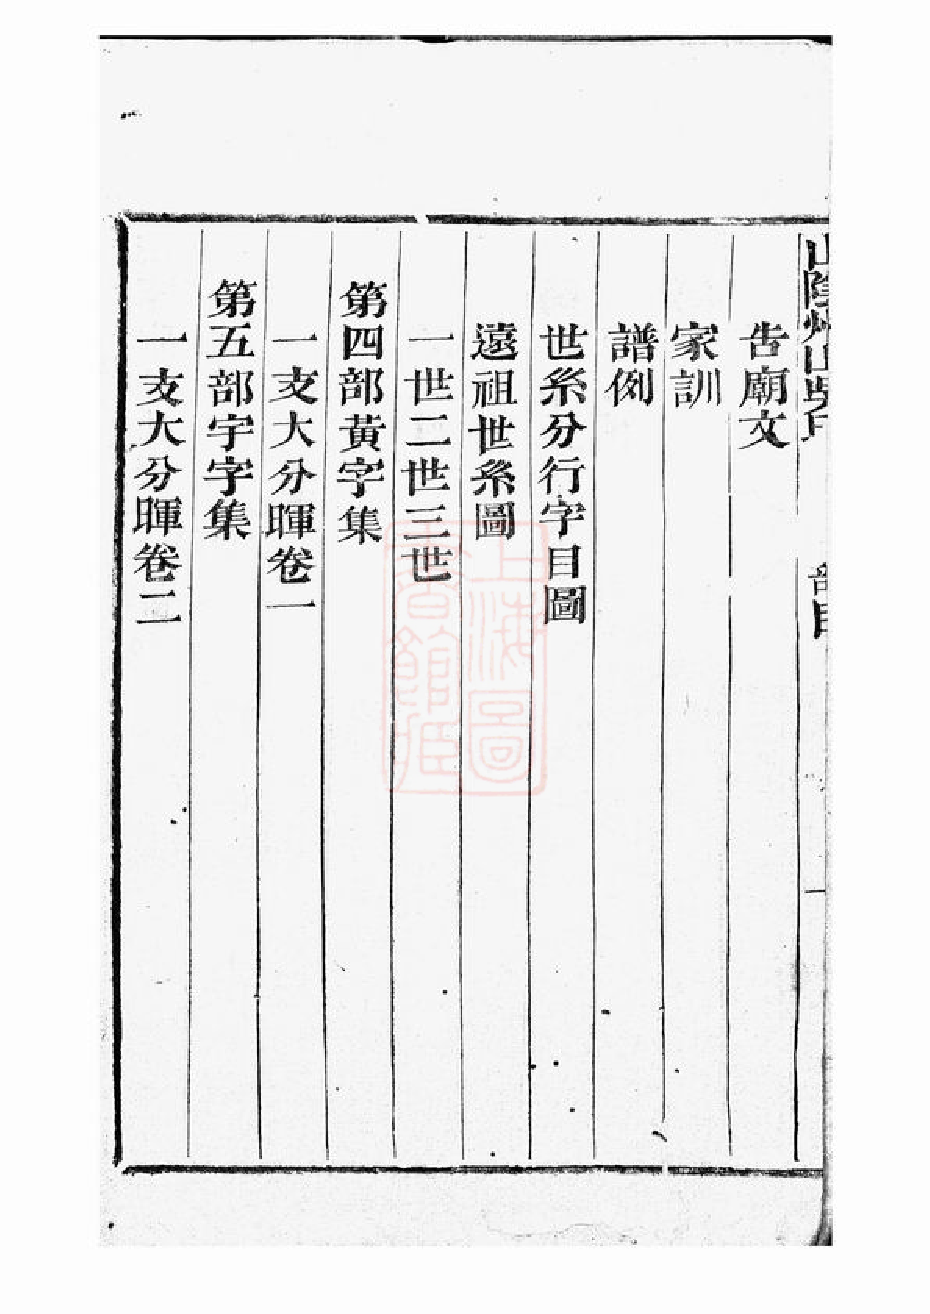 告廟文
家訓
譜例
世系分行字目圖
遠祖世系圖
一世二世三世
第四部黃字集
一支大分暉卷一
第五部宇字集
一支大分暉卷二
上海圖
書館藏